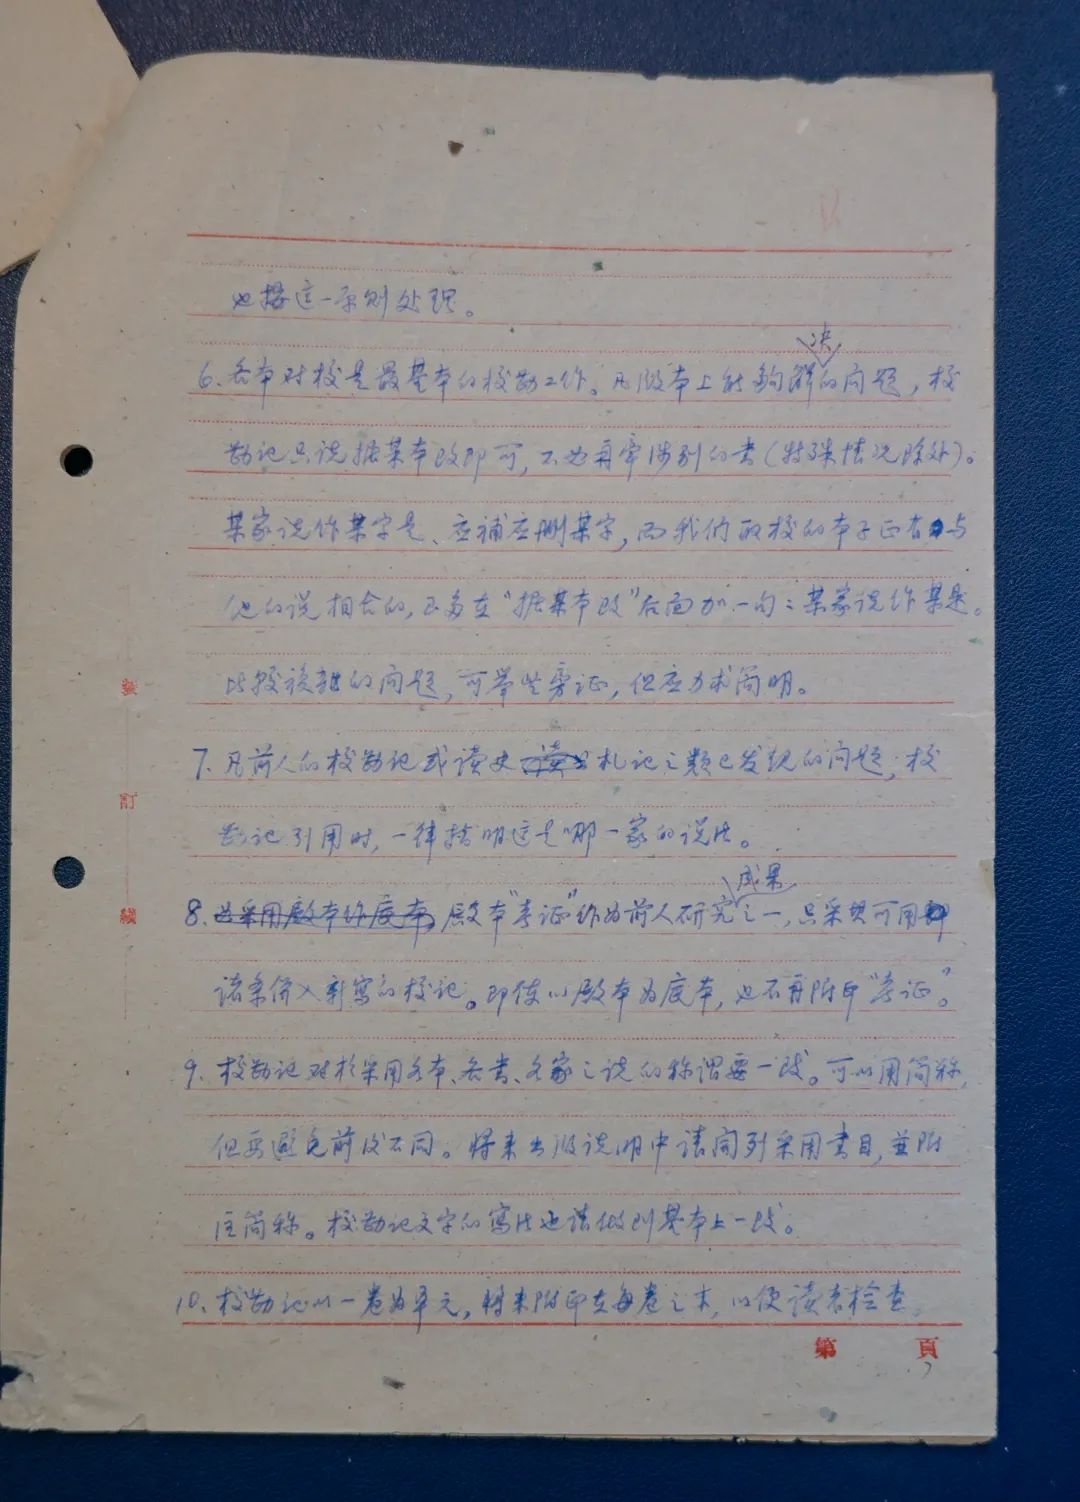 也据这一原则处理。
6、各本对校是最基本的校勘工作。凡版本上能够解决的问题，校
勘记只说据某本改即可，不必再牵涉别的书（特殊情况除外）。
某家说作某字是、应补应删某字，而我们取校的本子正有与
他的说相合的，只多在“据某本改”后面加一句：某家说作某是。
比较複雜的问题，可举些旁证，但应力求简明。
7、凡前人的校勘记或读史札记之类已发现的问题，校
勘记引用时，一律指明这是哪一家的说法。
8、也采用殿本作底本，殿本“考证”作为前人研究成果之一，只采其可用
诸条併入新写的校记。即使以殿本为底本，也不再附印“考证”。
9、校勘记对於采用各本、各书、各家之说的称谓要一致。可以用简称，
但要避免前后不同。将来出版说明中请开列采用书目，並附
注简称。校勘记文字的写法也请做到基本上一致。
10、校勘记以一卷为单元，将来附印在每卷之末，以便读者检查。
装
訂
綫
第 頁